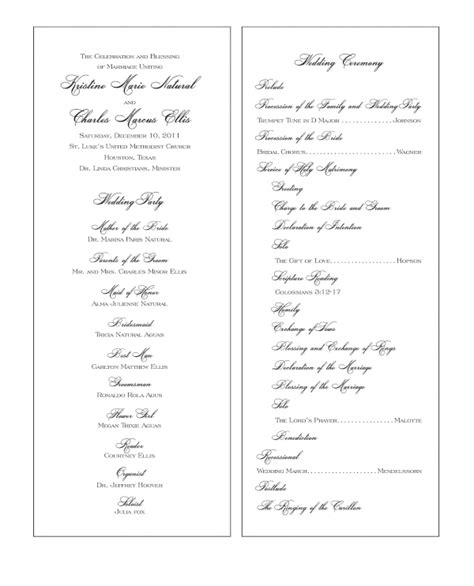 The Celebration and Blessing
of Marriage Uniting
Kristine Marie Natural
and
Charles Marcus Ellis
Saturday, December 10, 2011
St. Luke's United Methodist Church
Houston, Texas
Dr. Linda Christians, Minister
Wedding Party
Mother of the Bride
Dr. Marina Paris Natural
Parents of the Groom
Mr. and Mrs. Charles Minor Ellis
Maid of Honor
Alma Julienne Natural
Bridesmaid
Tricia Natural Aguas
Best Man
Carlton Matthew Ellis
Groomsman
Ronaldo Rola Aguis
Flower Girl
Megan Trixie Aguas
Reader
Courtney Ellis
Organist
Dr. Jeffrey Hoover
Soloist
Julia Fox
Wedding Ceremony
Prelude
Procession of the Family and Wedding Party
Trumpet Tune in D Major....................Johnson
Procession of the Bride
Bridal Chorus....................Wagner
Service of Holy Matrimony
Greeting
Charge to the Bride and Groom
Declaration of Intention
Solo
The Gift of Love....................Hopson
Scripture Reading
Colossians 3:12-17
Homily
Exchange of Vows
Blessing and Exchange of Rings
Declaration of the Marriage
Blessing of the Marriage
Solo
The Lord's Prayer....................Malotte
Benediction
Recessional
Wedding March....................Mendelssohn
Postlude
The Ringing of the Carillon